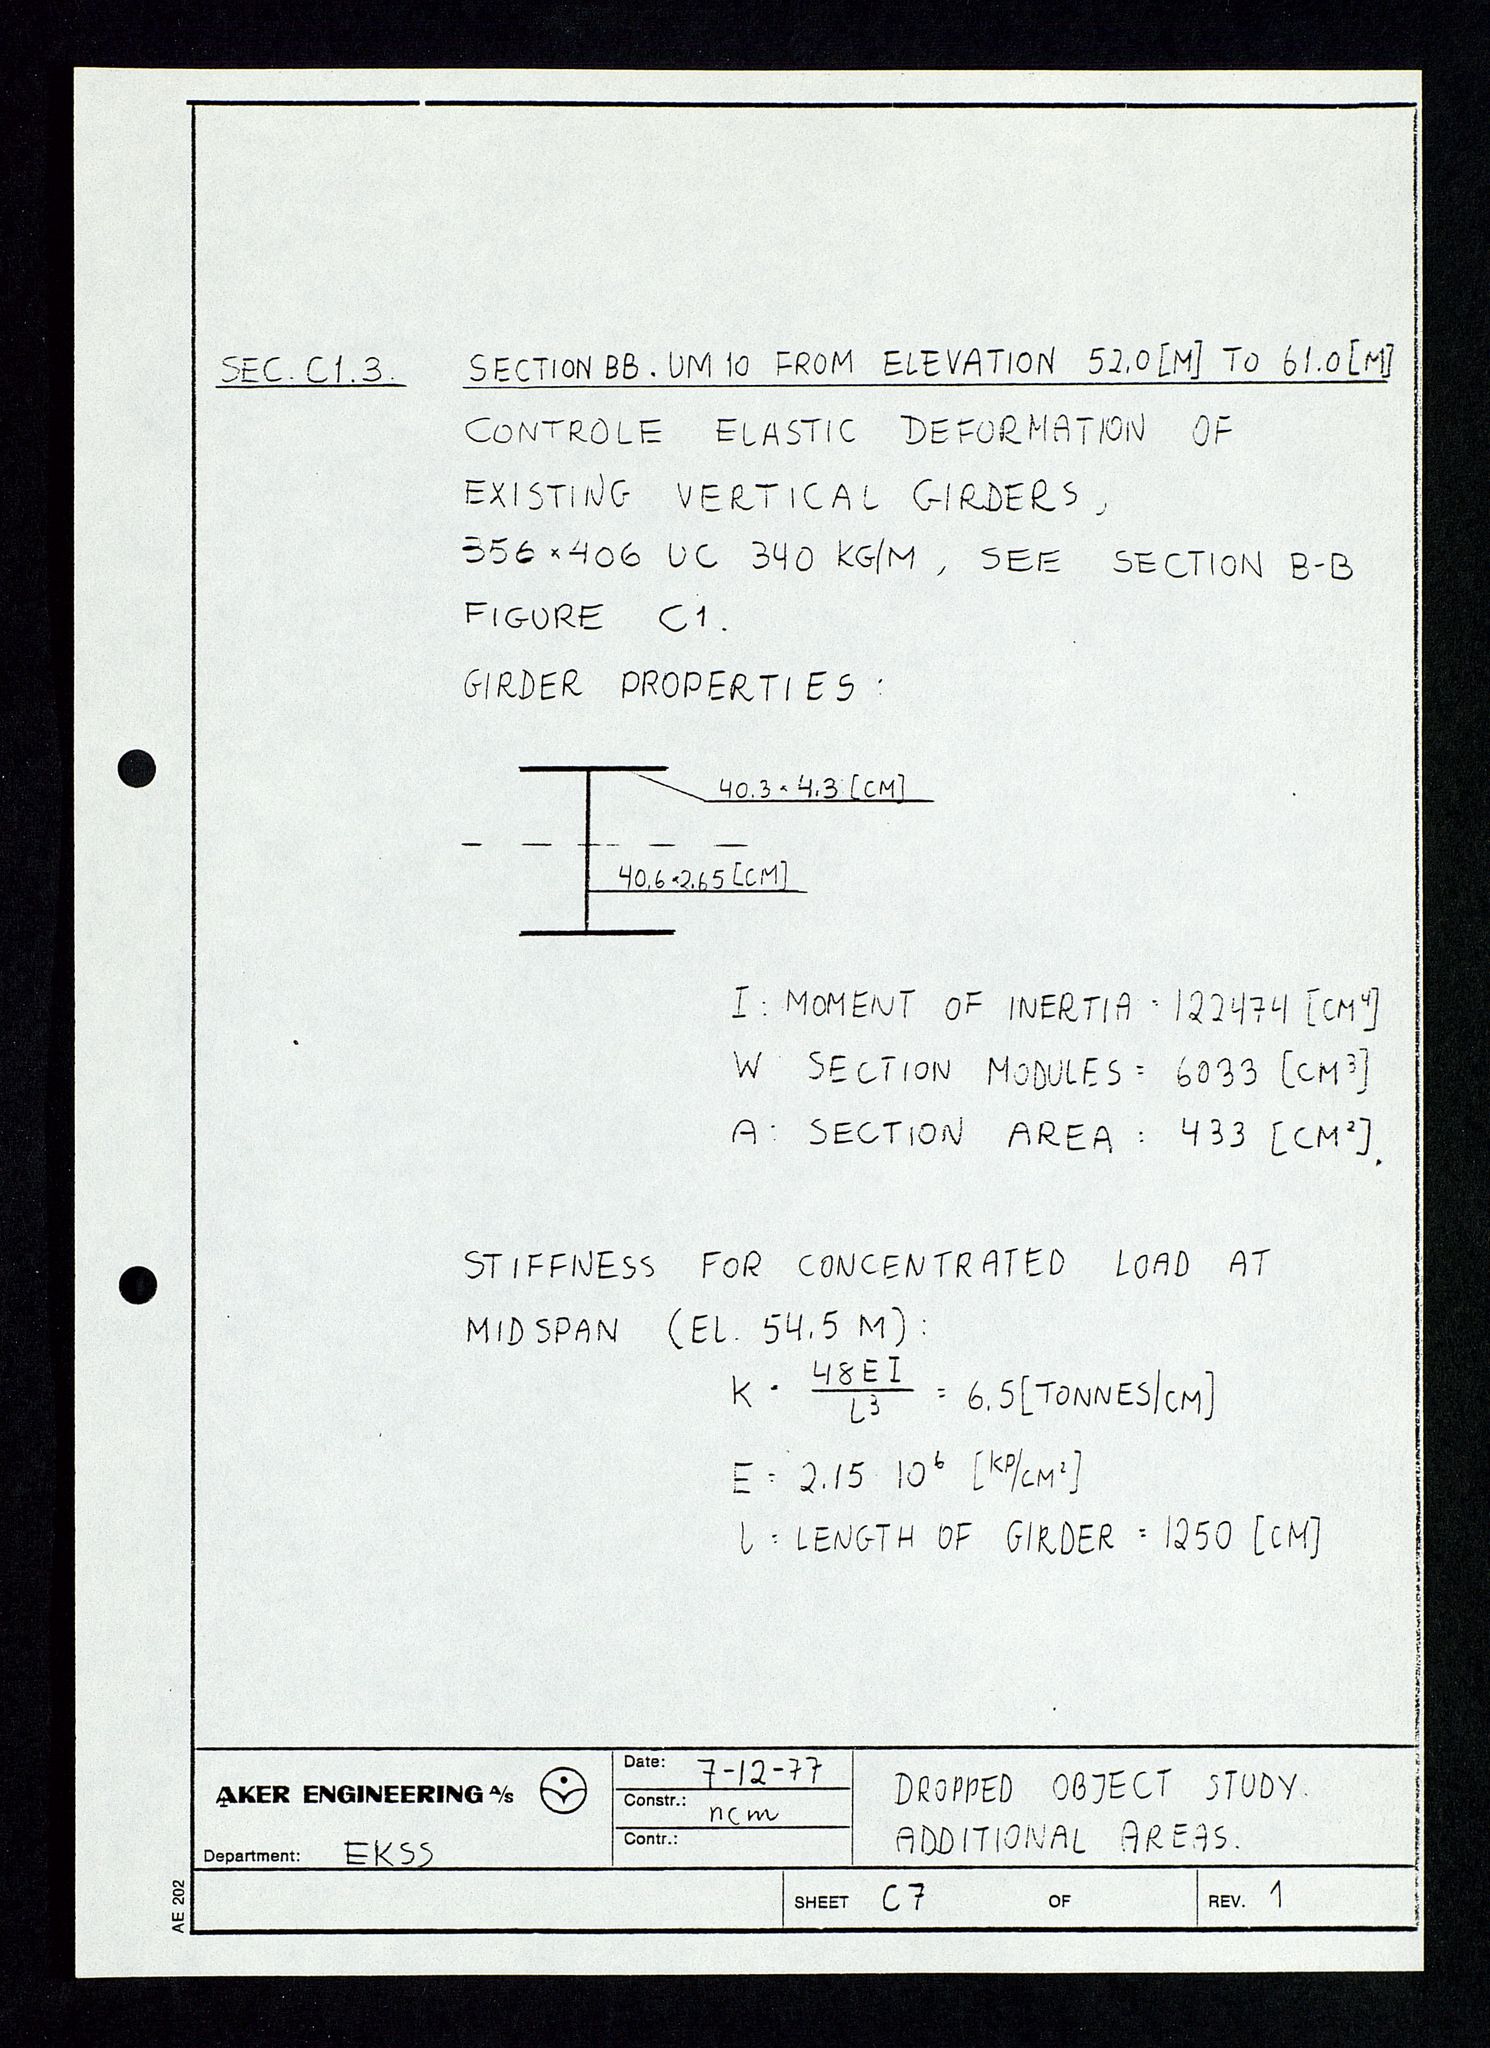 SEC. C1.3. SECTION BB. UM 10 FROM ELEVATION 52.0 [M] TO 61.0 [M]
CONTROLE ELASTIC DEFORMATION OF
EXISTING VERTICAL GIRDERS,
356 × 406 UC 340 KG/M, SEE SECTION B-B
FIGURE C1.
GIRDER PROPERTIES:
40.3 × 4.3 [CM]
40.6 × 2.65 [CM]
I: MOMENT OF INERTIA = 122474 [CM⁴]
W SECTION MODULES = 6033 [CM³]
A: SECTION AREA = 433 [CM²].
STIFFNESS FOR CONCENTRATED LOAD AT
MIDSPAN (EL. 54.5 M):
K = 48EI / L³ = 6.5 [TONNES/CM]
E = 2.15 10⁶ [KP/CM²]
l = LENGTH OF GIRDER = 1250 [CM]
AKER ENGINEERING A/S
Department: EKSS
Date: 7-12-77
Constr.: ncm
Contr.:
DROPPED OBJECT STUDY.
ADDITIONAL AREAS.
SHEET C7 OF
REV. 1
AE 202